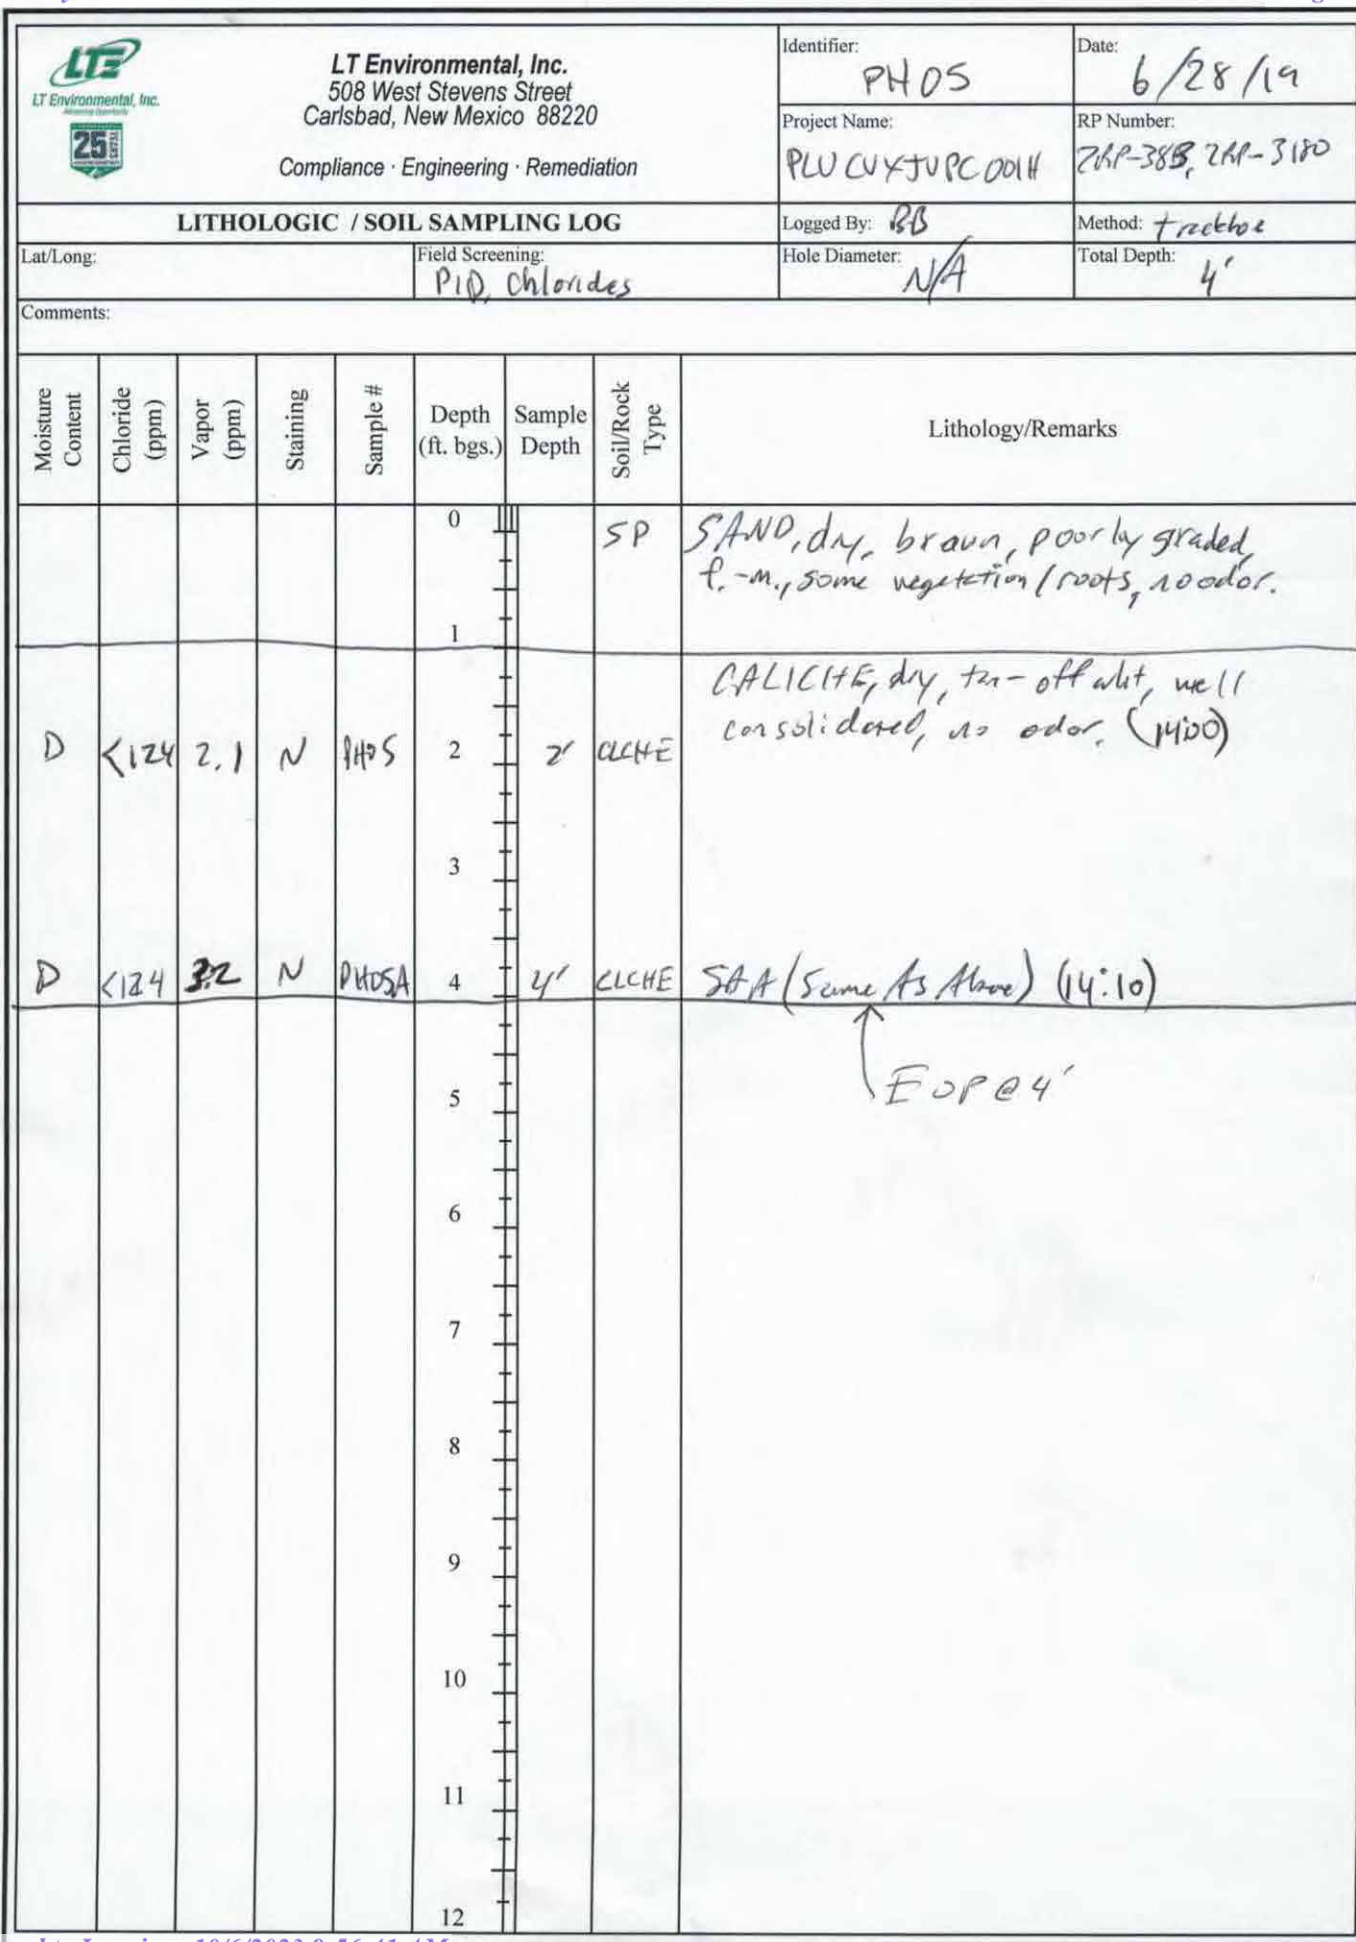 LTE
LT Environmental, Inc.
25
LT Environmental, Inc.
508 West Stevens Street
Carlsbad, New Mexico 88220
Compliance · Engineering · Remediation
Identifier:
PH05
Date:
6/28/19
Project Name:
PLU CVX JV PC 001H
RP Number:
2RP-3180
LITHOLOGIC / SOIL SAMPLING LOG
Logged By: BB
Method: trackhoe
Lat/Long:
Field Screening:
PID, Chlorides
Hole Diameter:
N/A
Total Depth:
4'
Comments:
Moisture Content
Chloride (ppm)
Vapor (ppm)
Staining
Sample #
Depth (ft. bgs.)
Sample Depth
Soil/Rock Type
Lithology/Remarks
0 SP SAND, dry, brown, poorly graded,
f.-m., some vegetation/roots, no odor.
1
CALICHE, dry, tan-off whit, well
consolidated, no odor. (14:00)
D <124 2.1 N PH05 2 2' CLCHE
3
D <124 3.2 N PH05A 4 4' CLCHE SAA (Same As Above) (14:10)
EOP@4'
5
6
7
8
9
10
11
12
10/6/2023 9:56:41 AM